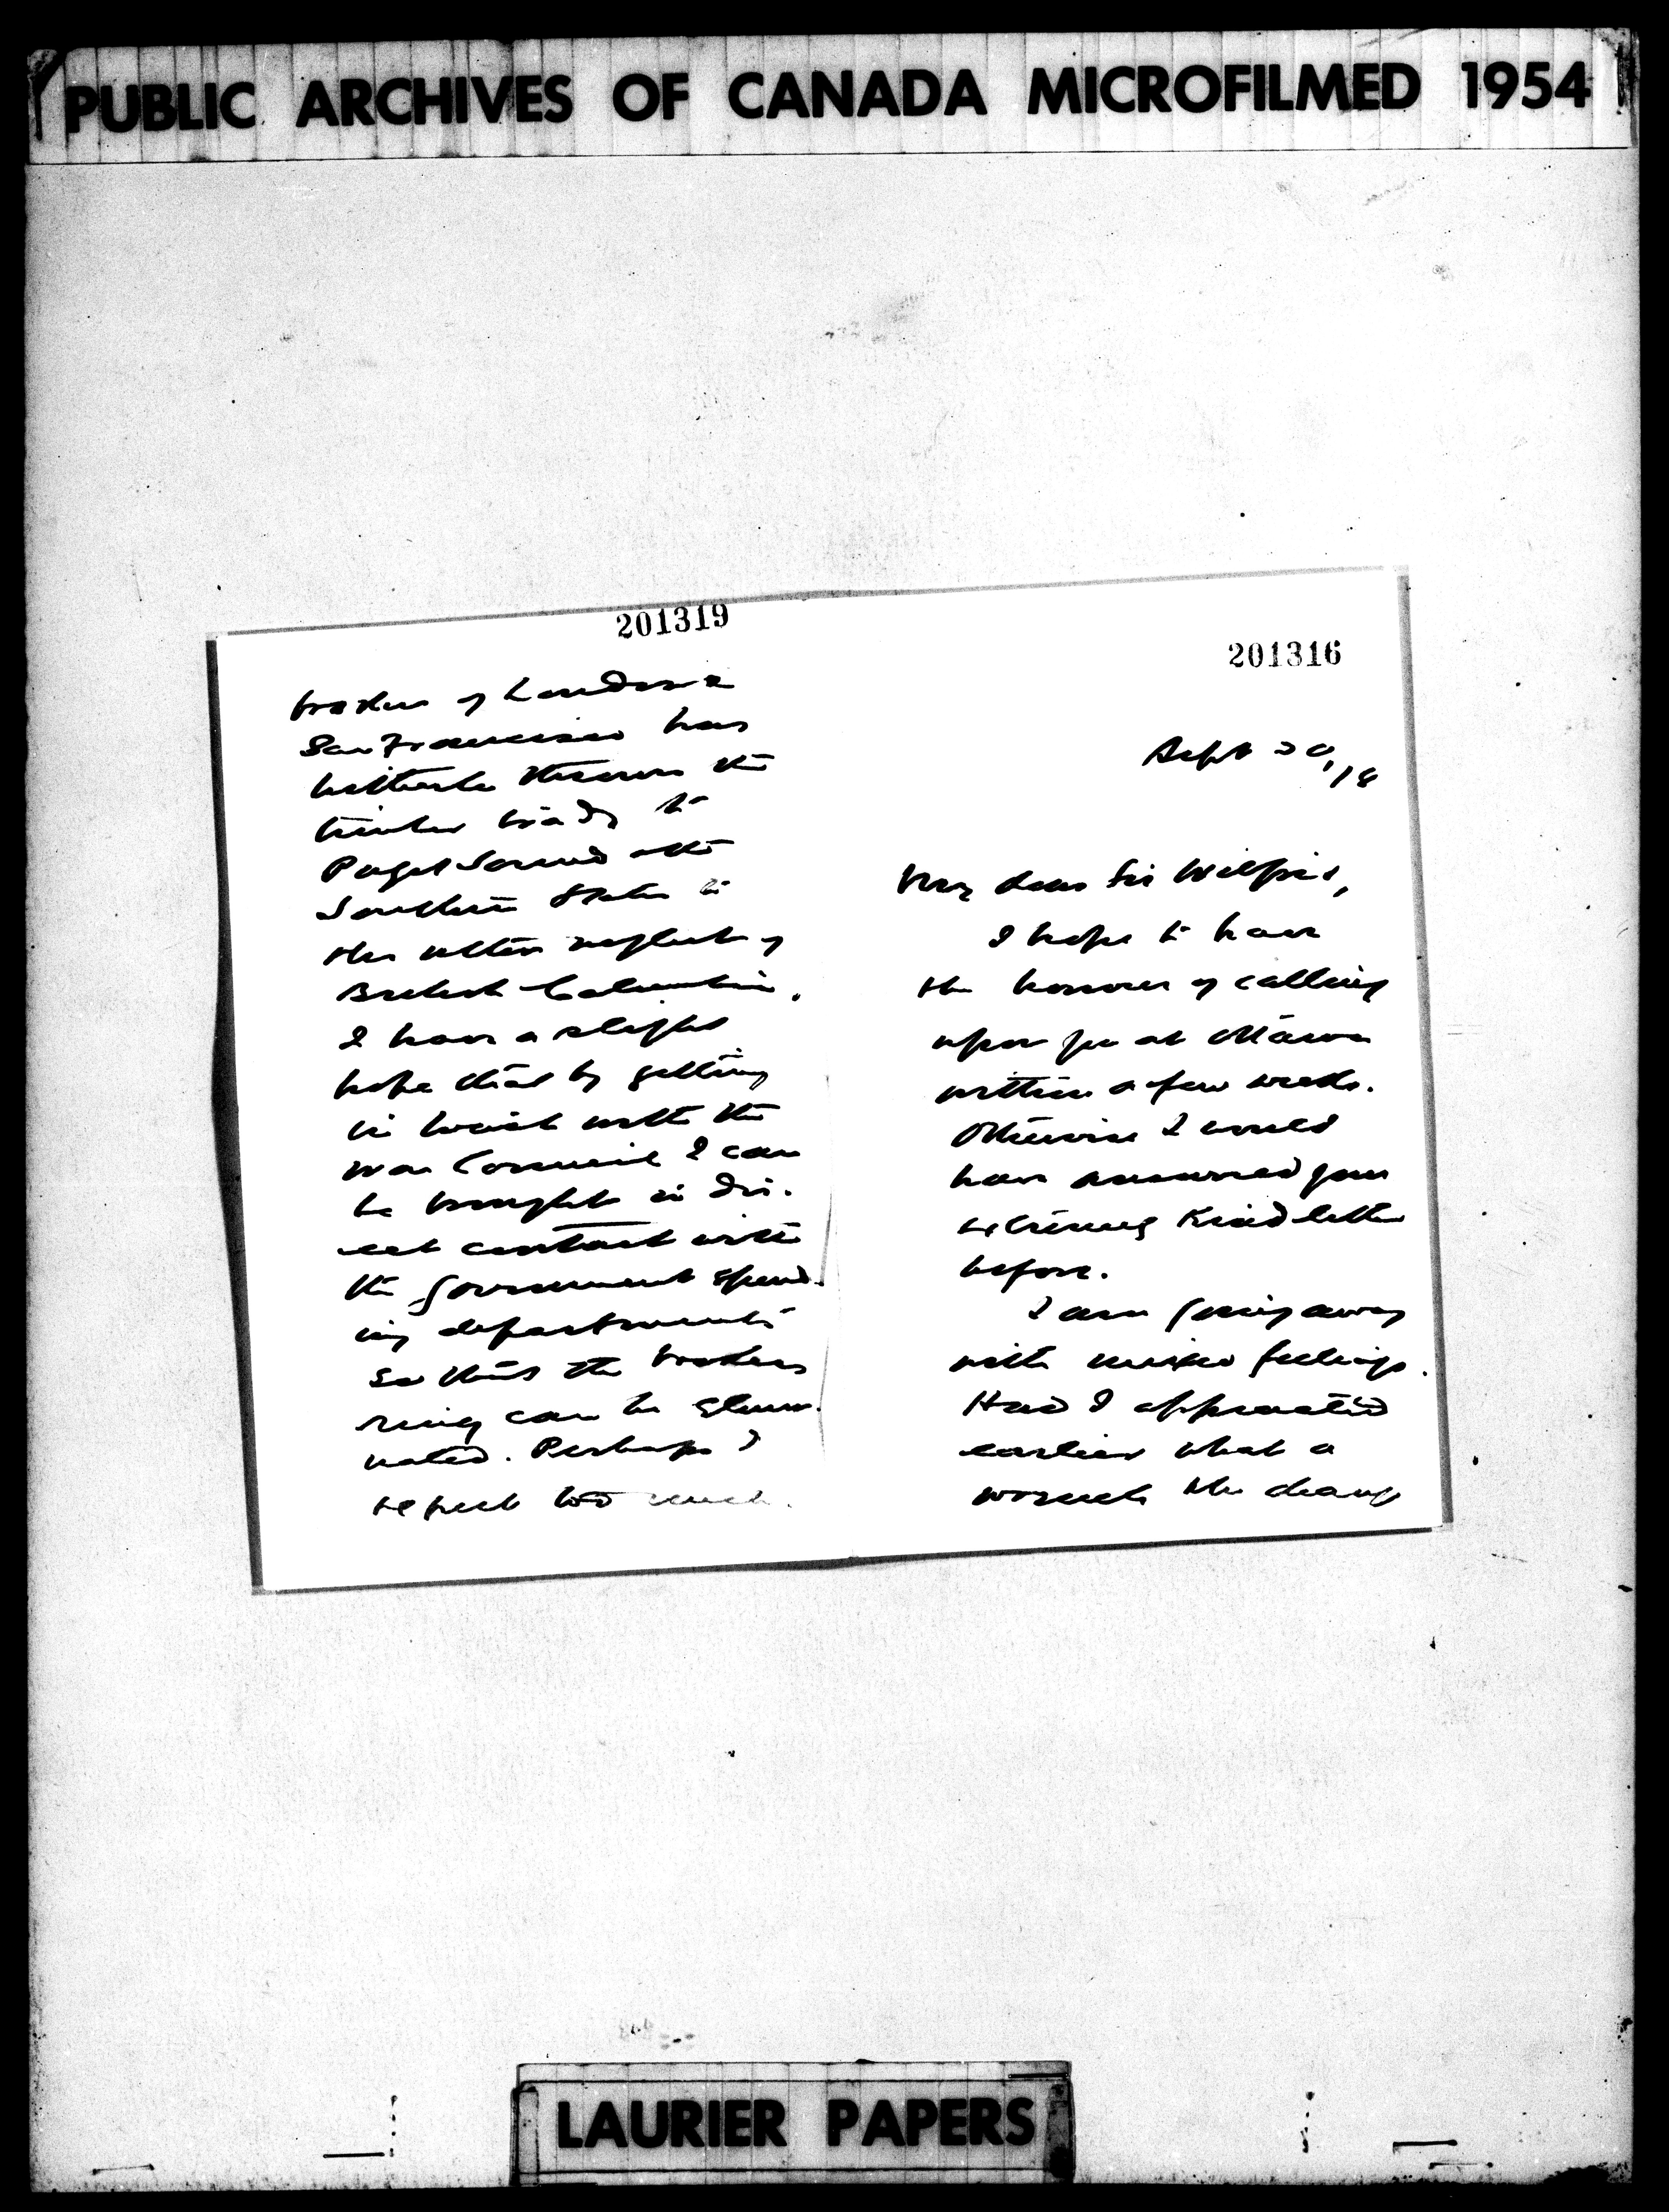 PUBLIC ARCHIVES OF CANADA MICROFILMED 1954
201319
brokers of London &
San Francisco has
hitherto thrown the
timber trade to
Puget Sound & the
Southern States to
the utter neglect of
British Columbia.
I have a slight
hope that by getting
in touch with the
War Council I can
be brought in dir-
ect contact with
the Government spend-
ing departments
so that the brokers
ring can be elimi-
nated. Perhaps I
expect too much.
201316
Sept 20, 18
My dear Sir Wilfrid,
I hope to have
the honour of calling
upon you at Ottawa
within a few weeks.
Otherwise I would
have answered your
extremely kind letter
before.
I am going away
with mixed feelings.
Had I appreciated
earlier what a
the change
LAURIER PAPERS